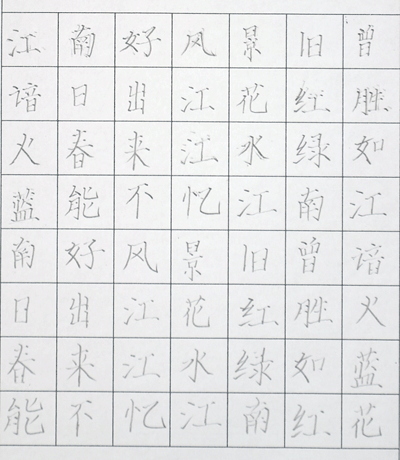 江南好风景旧曾
谙日出江花红胜
火春来江水绿如
蓝能不忆江南江
南好风景旧曾谙
日出江花红胜火
春来江水绿如蓝
能不忆江南红花